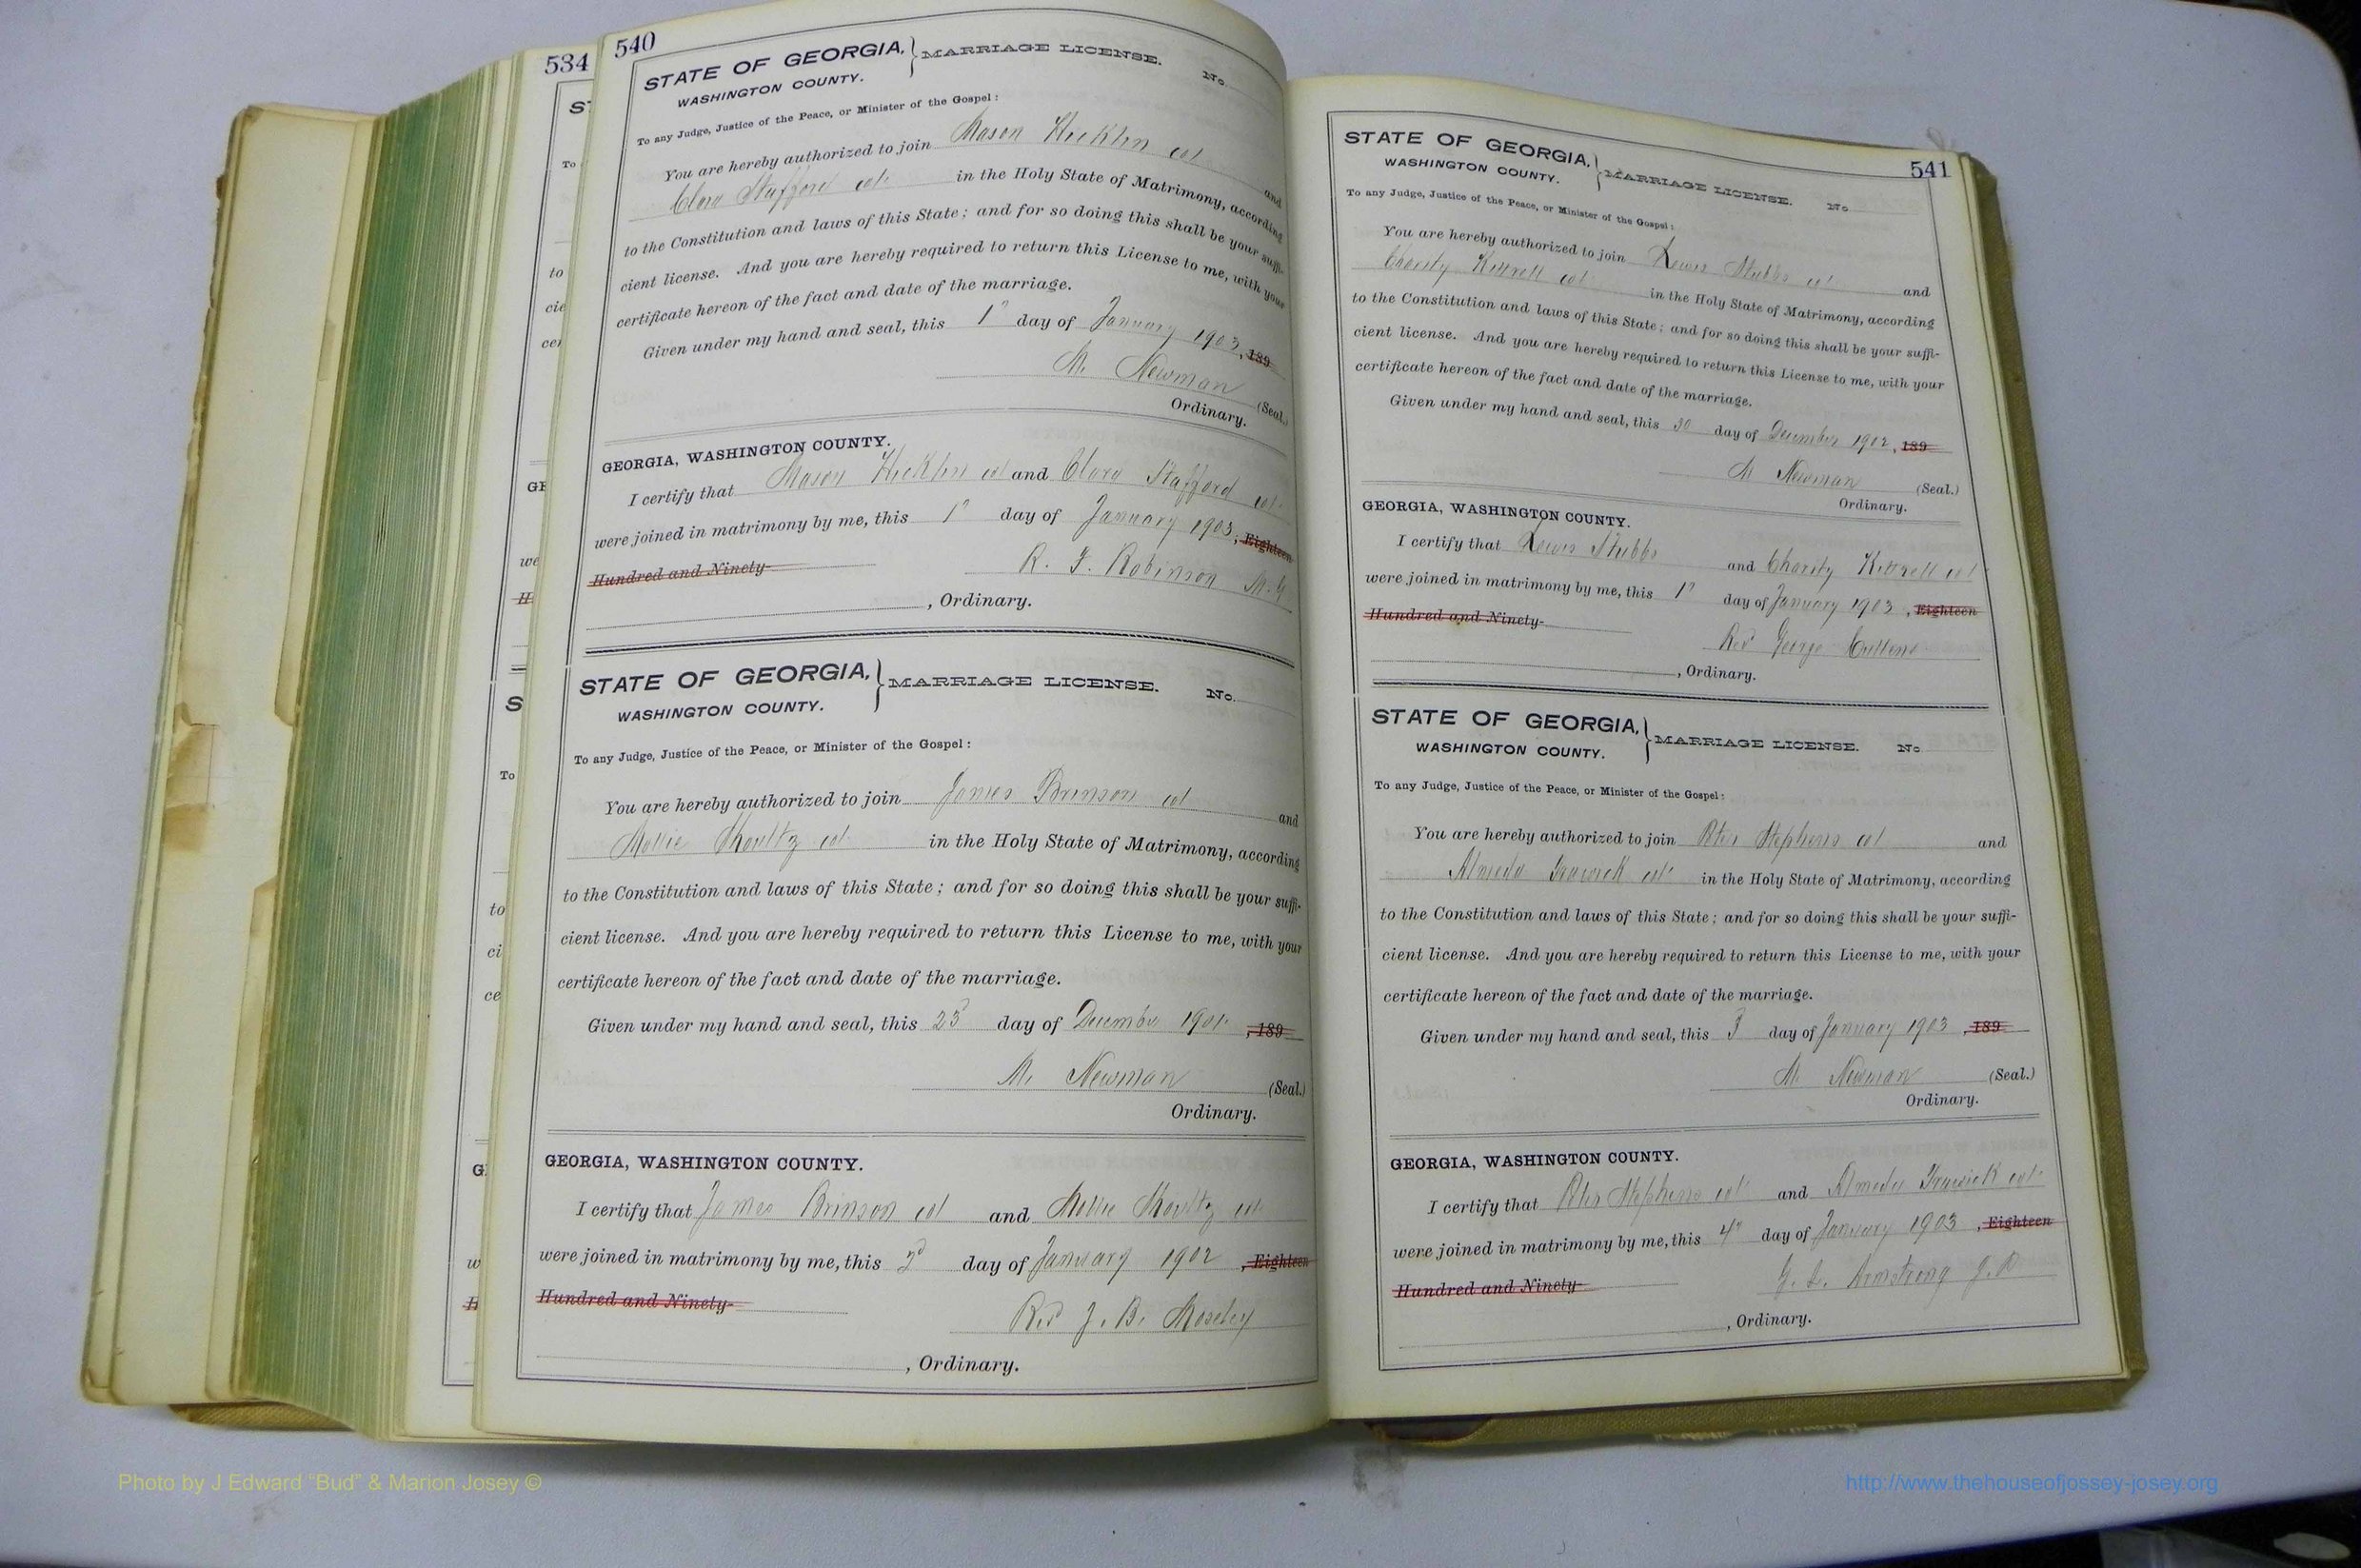 534
540
STATE OF GEORGIA, } MARRIAGE LICENSE. No.
WASHINGTON COUNTY.
To any Judge, Justice of the Peace, or Minister of the Gospel:
You are hereby authorized to join Mason Hicklin col and
Clara Stafford col. in the Holy State of Matrimony, according
to the Constitution and laws of this State; and for so doing this shall be your suffi-
cient license. And you are hereby required to return this License to me, with your
certificate hereon of the fact and date of the marriage.
Given under my hand and seal, this 1" day of January 1903, 189
M. Newman (Seal.)
Ordinary.
GEORGIA, WASHINGTON COUNTY.
I certify that Mason Hicklin col and Clara Stafford col.
were joined in matrimony by me, this 1" day of January 1903, Eighteen
Hundred and Ninety- R. F. Robinson M.G
, Ordinary.
STATE OF GEORGIA, } MARRIAGE LICENSE. No.
WASHINGTON COUNTY.
To any Judge, Justice of the Peace, or Minister of the Gospel:
You are hereby authorized to join James Brinson col and
Mollie col. in the Holy State of Matrimony, according
to the Constitution and laws of this State; and for so doing this shall be your suffi-
cient license. And you are hereby required to return this License to me, with your
certificate hereon of the fact and date of the marriage.
Given under my hand and seal, this 23 day of December 1901. , 189
M. Newman (Seal.)
Ordinary.
GEORGIA, WASHINGTON COUNTY.
I certify that James Brinson col and Mollie col.
were joined in matrimony by me, this 2d day of January 1902 , Eighteen
Hundred and Ninety-
Rev J. B. Moseley
, Ordinary.
541
STATE OF GEORGIA, } MARRIAGE LICENSE. No
WASHINGTON COUNTY.
To any Judge, Justice of the Peace, or Minister of the Gospel:
You are hereby authorized to join Lewis Stubbs col and
Charity Kittrell col in the Holy State of Matrimony, according
to the Constitution and laws of this State; and for so doing this shall be your suffi-
cient license. And you are hereby required to return this License to me, with your
certificate hereon of the fact and date of the marriage.
Given under my hand and seal, this 30 day of December 1902, 189
M Newman (Seal.)
Ordinary.
GEORGIA, WASHINGTON COUNTY.
I certify that Lewis Stubbs and Charity Kittrell col
were joined in matrimony by me, this 1" day of January 1903 , Eighteen
Hundred and Ninety-
Rev George
, Ordinary.
STATE OF GEORGIA, } MARRIAGE LICENSE. No
WASHINGTON COUNTY.
To any Judge, Justice of the Peace, or Minister of the Gospel:
You are hereby authorized to join Peter Stephens col and
Almeda Trawick col. in the Holy State of Matrimony, according
to the Constitution and laws of this State; and for so doing this shall be your suffi-
cient license. And you are hereby required to return this License to me, with your
certificate hereon of the fact and date of the marriage.
Given under my hand and seal, this 3 day of January 1903 , 189
M. Newman (Seal.)
Ordinary.
GEORGIA, WASHINGTON COUNTY.
I certify that Peter Stephens col and Almeda Trawick col.
were joined in matrimony by me, this 4" day of January 1903 , Eighteen
Hundred and Ninety- Armstrong J.P.
, Ordinary.
Photo by J Edward “Bud” & Marion Josey ©
http://www.thehouseofjossey-josey.org